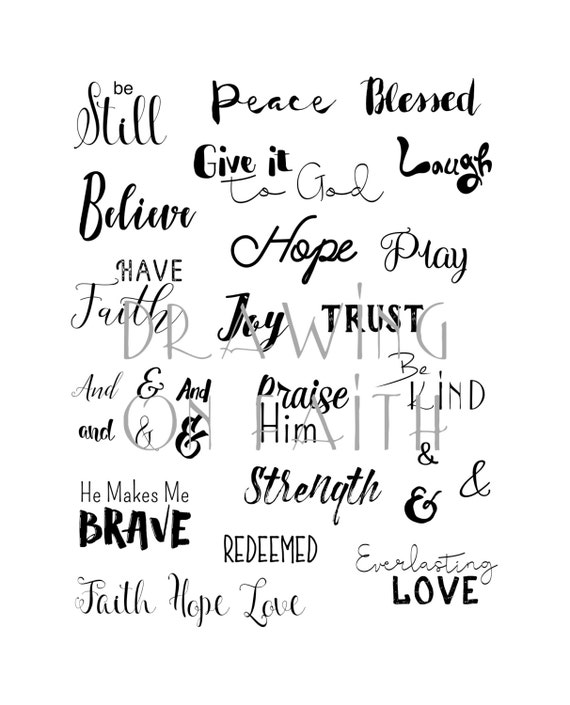 be
Still
Peace
Blessed
Give it
to God
Laugh
Believe
Hope
Pray
HAVE
Faith
Joy
TRUST
DRAWING
ON FAITH
Be
KIND
And & And
and & &
Praise
Him
&
& &
He Makes Me
BRAVE
Strength
REDEEMED
Everlasting
LOVE
Faith Hope Love